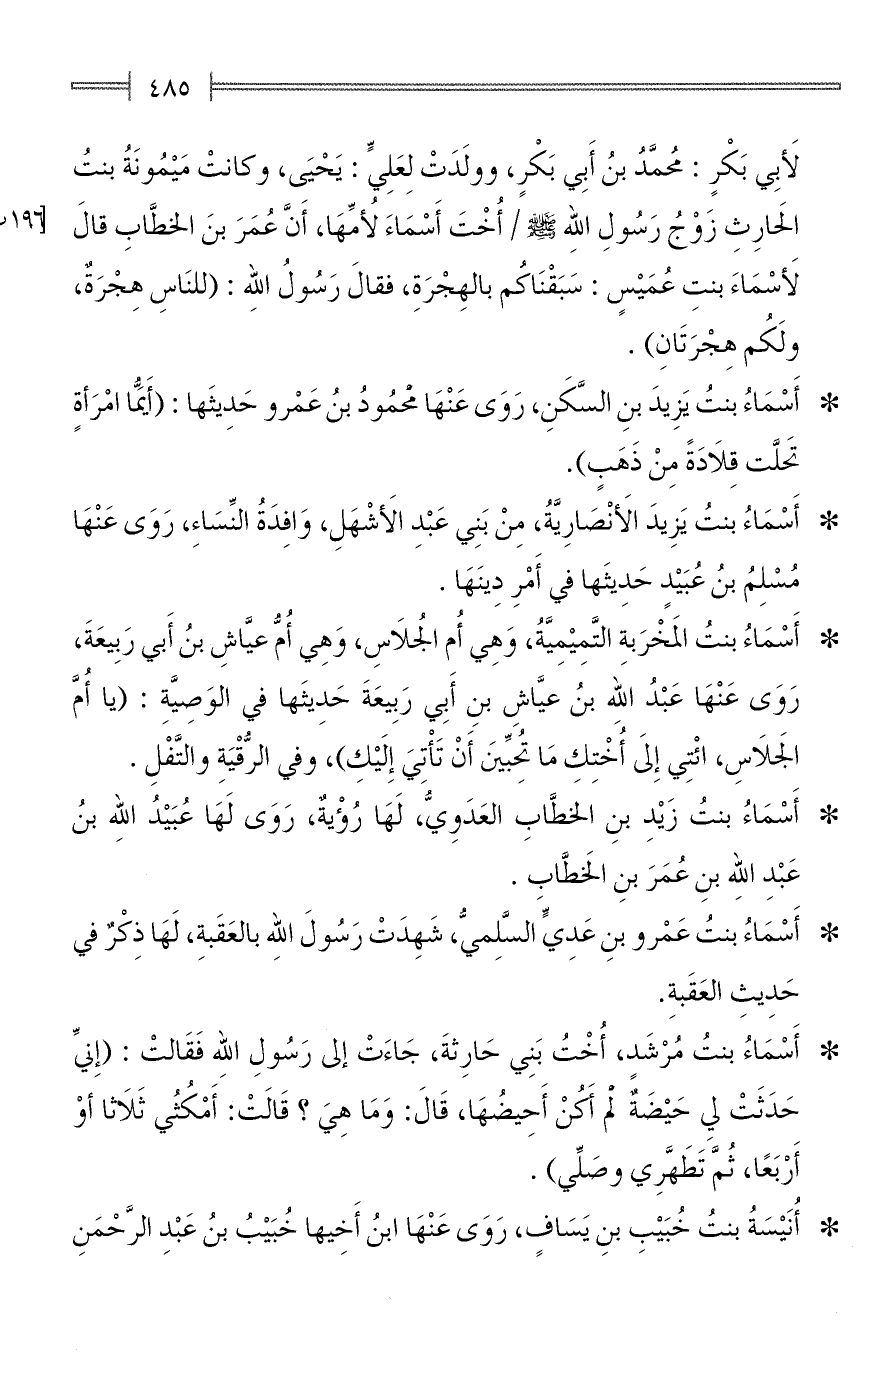 ٤٨٥
لَأبِي بَكْرٍ : مُحمَّدُ بنُ أَبِي بَكْرٍ، وولَدَتْ لِعَليٍّ : يَحْيَى، وكانتْ مَيْمُونَةُ بنتُ
الحَارِثِ زَوْجُ رَسُولِ اللهِ ﷺ / أُخْتَ أسْمَاءَ لُأمِّهَا، أنَّ عُمَرَ بنَ الخطَّابِ قالَ
لَأسْمَاءَ بنتِ عُمَيْسٍ : سَبَقْنَاكُم بالهِجْرَةِ، فقالَ رَسُولُ اللهِ : (للنَاسِ هِجْرَةٌ،
ولَكُم هِجْرَتَانِ) .
* أَسْمَاءُ بنتُ يَزِيدَ بنِ السَّكَنِ، رَوَى عَنْهَا مَحْمُودُ بنُ عَمْرو حَدِيثَها : (أَيُّمَا امْرَأةٍ
تَحلَّت قِلَادَةً مِنْ ذَهَبٍ).
* أَسْمَاءُ بنتُ يَزِيدَ الأَنْصَاريَّةُ، مِنْ بَنِي عَبْدِ الأَشْهَلِ، وَافِدَةُ النِّسَاءِ، رَوَى عَنْهَا
مُسْلِمُ بنُ عُبَيْدٍ حَدِيثَها في أَمْرِ دِينَهَا .
* أَسْمَاءُ بنتُ المَخْرَبةِ التَّمِيْمِيَّةُ، وَهِي أُم الجُلَاسِ، وَهِي أُمُّ عيَّاشِ بنُ أبي رَبِيعَةَ،
رَوَى عَنْهَا عَبْدُ اللهِ بنُ عيَّاشِ بنِ أَبِي رَبِيعَةَ حَدِيثَها في الوَصِيَّةِ : (يا أُمَّ
الجَلَاسِ، ائْتِي إلَى أُخْتِكِ مَا تُحبِّينَ أَنْ تَأْتِيَ إلَيْكِ)، وفي الرُّقْيَةِ والتَّفْلِ .
* أَسْمَاءُ بنتُ زَيْدِ بنِ الخطَّابِ العَدَويُّ، لَهَا رُؤْيةٌ، رَوَى لَهَا عُبَيْدُ اللهِ بنُ
عَبْدِ اللهِ بنِ عُمَرَ بنِ الخَطَّابِ .
* أَسْمَاءُ بنتُ عَمْرو بنِ عَدِيٍّ السَّلِميُّ، شَهِدَتْ رَسُولَ اللهِ بالعَقَبةِ، لَهَا ذِكْرٌ في
حَدِيثِ العَقَبةِ.
* أَسْمَاءُ بنتُ مُرْشَدٍ، أُخْتُ بَنِي حَارِثةَ، جَاءَتْ إلى رَسُولِ اللهِ فَقَالتْ : (إنيِّ
حَدَثَتْ لِي حَيْضَةٌ لَمْ أَكُنْ أَحِيضُهَا، قَالَ: وَمَا هِيَ ؟ قَالَتْ: أَمْكُثُي ثَلَاثا أوْ
أَرْبَعًا، ثُمَّ تَطَهَّرِي وصَلِّي) .
* أُنَيْسَةُ بنتُ خُبَيْبِ بنِ يَسَافٍ، رَوَى عَنْهَا ابنُ أَخِيها خُبَيْبُ بنُ عَبْدِ الرَّحْمَنِ